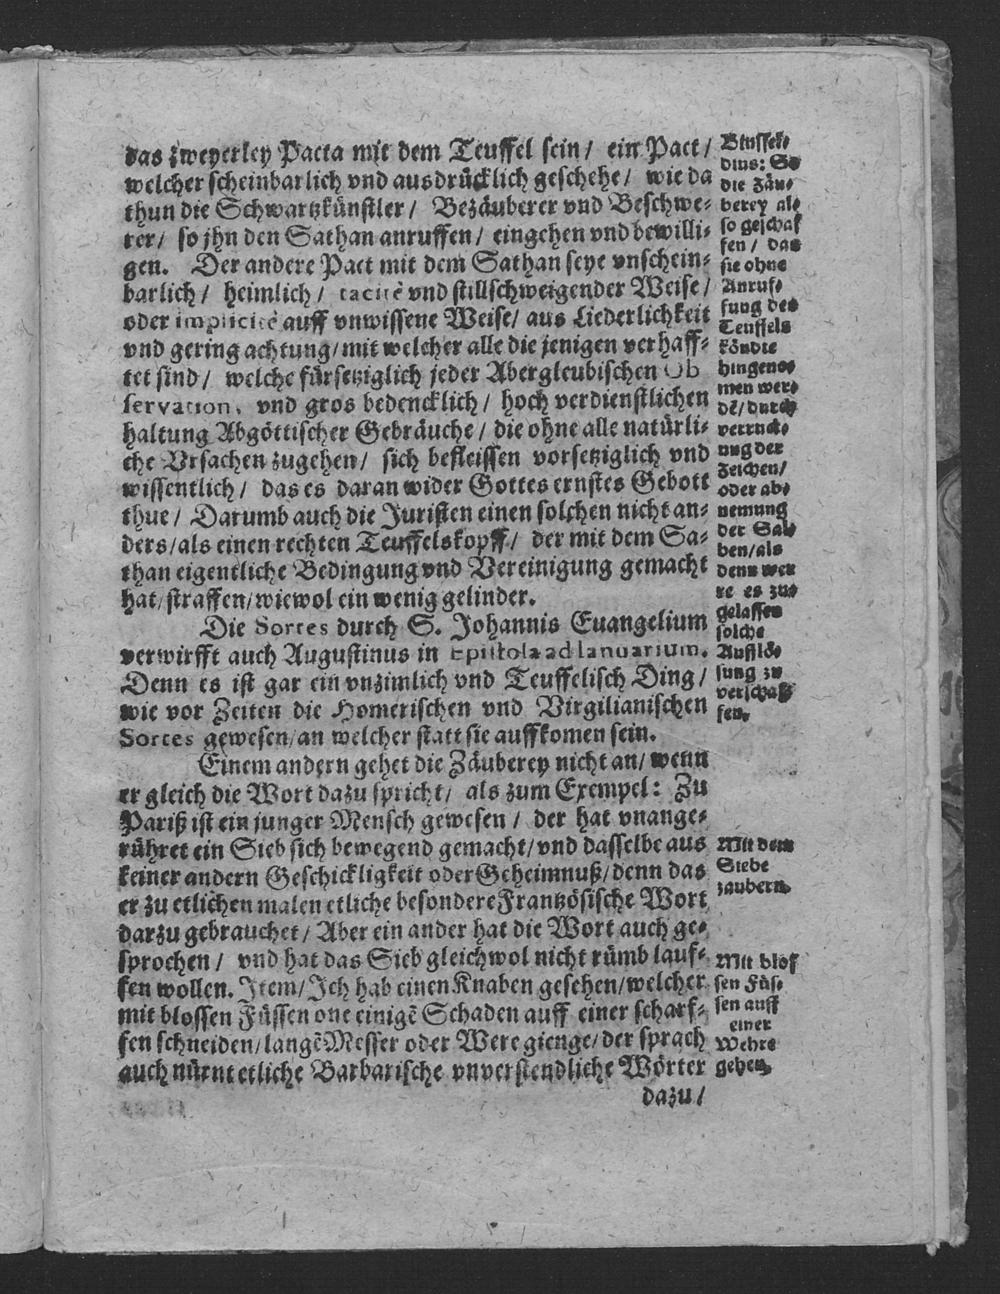 das zweyerley Pacta mit dem Teuffel sein / ein Pact /
welcher scheinbarlich vnd ausdrücklich geschehe / wie da
thun die Schwartzkünstler / Bezäuberer vnd Beschwe-
rer / so jhn den Sathan anruffen / eingehen vnd bewilli-
gen. Der andere Pact mit dem Sathan seye vnschein-
barlich / heimlich / tacitè vnd stillschweigender Weise /
oder implicitè auff vnwissene Weise / aus Liederlichkeit
vnd gering achtung / mit welcher alle die jenigen verhaff-
tet sind / welche fürsetziglich jeder Abergleubischen Ob
servation, vnd gros bedencklich / hoch verdienstlichen
haltung Abgöttischer Gebräuche / die ohne alle natürli-
che Vrsachen zugehen / sich befleissen vorsetziglich vnd
wissentlich / das es daran wider Gottes ernstes Gebott
thue / Darumb auch die Juristen einen solchen nicht an-
ders / als einen rechten Teuffelskopff / der mit dem Sa-
than eigentliche Bedingung vnd Vereinigung gemacht
hat / straffen / wiewol ein wenig gelinder.
Die Sortes durch S. Johannis Euangelium
verwirfft auch Augustinus in Epistola ad Ianuarium.
Denn es ist gar ein vnzimlich vnd Teuffelisch Ding /
wie vor Zeiten die Homerischen vnd Virgilianischen
Sortes gewesen / an welcher statt sie auffkomen sein.
Einem andern gehet die Zäuberey nicht an / wenn
er gleich die Wort dazu spricht / als zum Exempel: Zu
Pariß ist ein junger Mensch gewesen / der hat vnange-
rühret ein Sieb sich bewegend gemacht / vnd dasselbe aus
keiner andern Geschickligkeit oder Geheimnuß / denn das
er zu etlichen malen etliche besondere Frantzösische Wort
darzu gebrauchet / Aber ein ander hat die Wort auch ge-
sprochen / vnd hat das Sieb gleichwol nicht rümb lauf-
fen wollen. Item / Ich hab einen Knaben gesehen / welcher
mit blossen Füssen one einigẽ Schaden auff einer scharf-
fen schneiden / langẽ Messer oder Were gienge / der sprach
auch nürnt etliche Barbarische vnverstendliche Wörter
dazu /
Binsfel-
dius: So
die Zäu-
berey al-
so geschaf
fen / das
sie ohne
Anruf-
fung des
Teuffels
köndte
hingenom
men wer-
dẽ / durch
verruck-
ung der
Zeichen /
oder ab-
nemung
der Sal-
ben / als
denn wer
re es zu-
gelassen
solche
Aufflö-
sung zu
verschaf
fen.
Mit dem
Siebe
zaubern.
Mit blos
sen Füs-
sen auff
einer
Wehre
gehen.